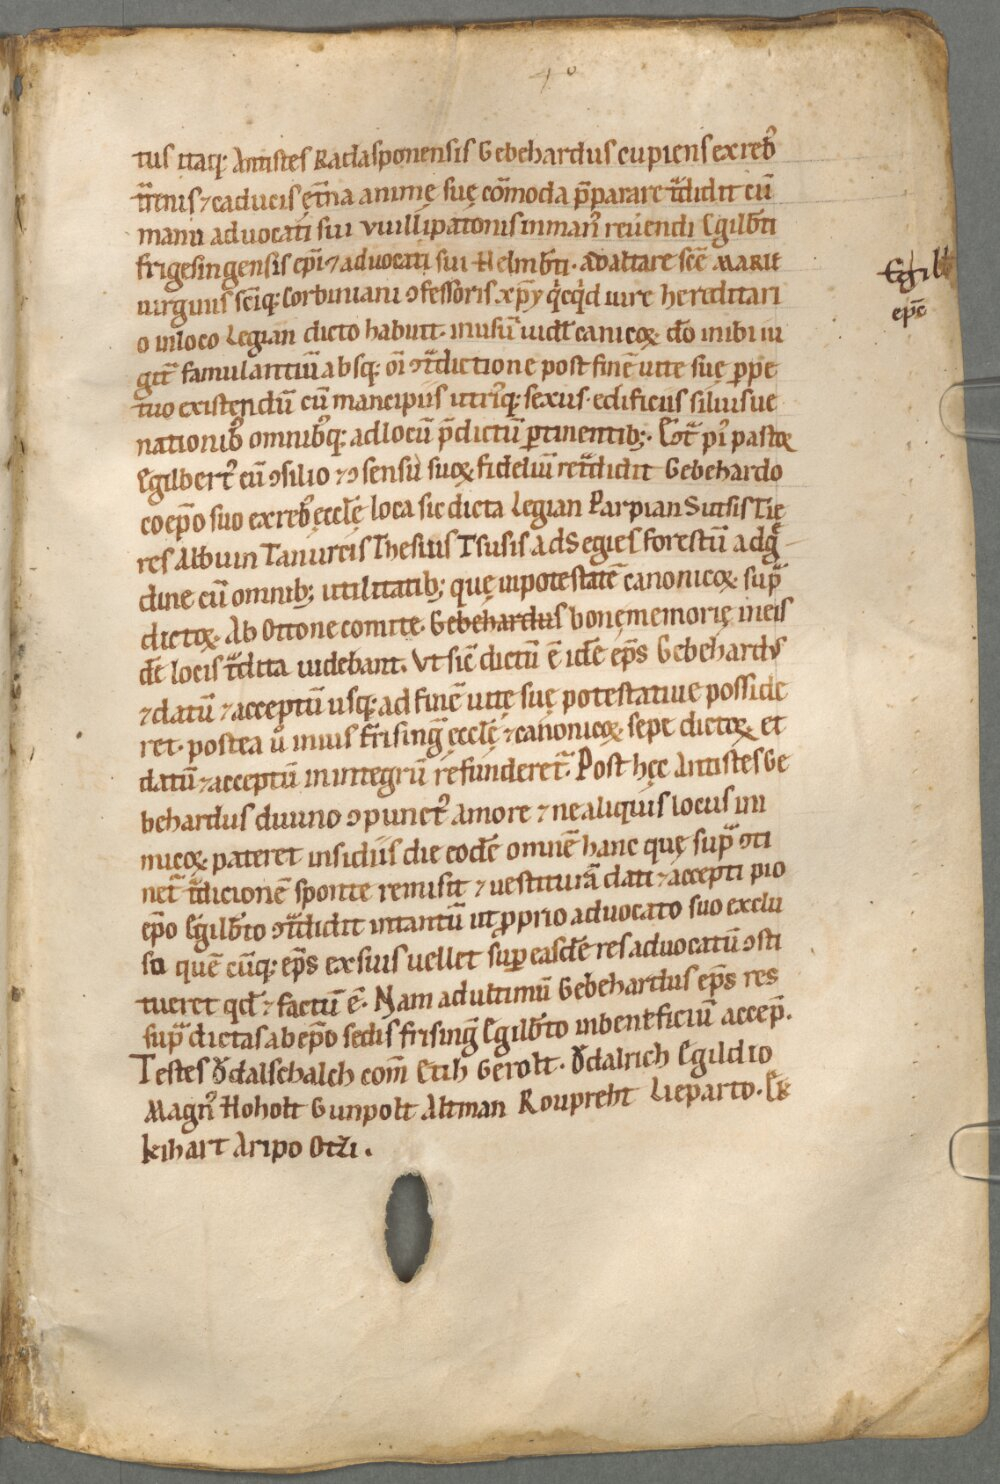 40
tus itaq; Antistes Radasponensis Gebehardus cupiens ex reb᾿
t̄renis ⁊ caducis ęt̄na animę suę cōmoda p̄parare t̄didit cū
manu advocati sui vuillipatonis in man᾿ reuendi Egilb̄ti
frigesingensis ep̄i ⁊ advocati sui Helmb̄ti. Ad altare sc̄e MARIE
uirginis sc̄iq; Corbiniani ꝯfessoris xp̄y q̇cq̇d iure hereditari
o in loco Legian dicto habuit. in usū uidel̄ canicoꝝ dō inibi iu
git̄ famulantiū absq; oī ꝯt̄dictione post finē uite suę ꝑpe
tuo existendū cū mancipiis utri᾿q; sexus. edificiis siluis ue
nationib᾿ omnib᾿q; ad locū p̄dictū ꝑtinentib;. Eḡt p᾿ pastoꝝ
Egilbert᾿ cū ꝯsilio ⁊ ꝯsensu suoꝝ fideliū ret̄didit Gebehardo
coep̄o suo ex reb᾿ ęccl̄ę loca sic dicta Legian Parpian Sutsis Tię
res Albuin Taniurcis Thesitis Tsusis ad Segies forestū ad q̄
dine cū omnib; utilitatib; quę in potestatē canonicoꝝ sup̄
dictoꝝ. Ab Ottone comite. Gebehardus bonę memorię in eis
dē locis t̄dita uidebant. Vt sic̄ dictū ē idē ep̄s Gebehards
⁊ datū ⁊ acceptū usq; ad finē uitę suę potestatiue posside
ret. postea ů in ius frising̅ ęccl̄ę ⁊ canonicoꝝ sepe dictoꝝ et
datū ⁊ acceptū in integrū refunderet̄. Post hęc Antistes Ge
behardus diuino ꝯpunct᾿ amore ⁊ ne aliquis locus ini
micoꝝ pateret insidiis die eodē omnē hanc quę sup̄ ꝯti
net̄ t̄dicionē sponte remisit ⁊ uestiturā dati ⁊ accepti pio
ep̄o Egilb̄to ꝯt̄didit in tantū ut ꝓprio advocato suo exclu
so quē cūq; ep̄s ex suis uellet suꝑ easdē res advocatū ꝯsti
tueret qd̄ ⁊ factū ē. Nam ad ultimū Gebehardus ep̄s res
sup̄dictas ab ep̄o sedis frising̅ Egilb̄to in beneficiū accep̄.
Testes Ǒdalschalch com̄ Etih Gerolt. Ǒdalrich Egil dio
Magn᾿ Hoholt Gunpolt Altman Roupreht Lieparto. Ek
kihart Aripo Otzi.
Egilb̄t
ep̄c